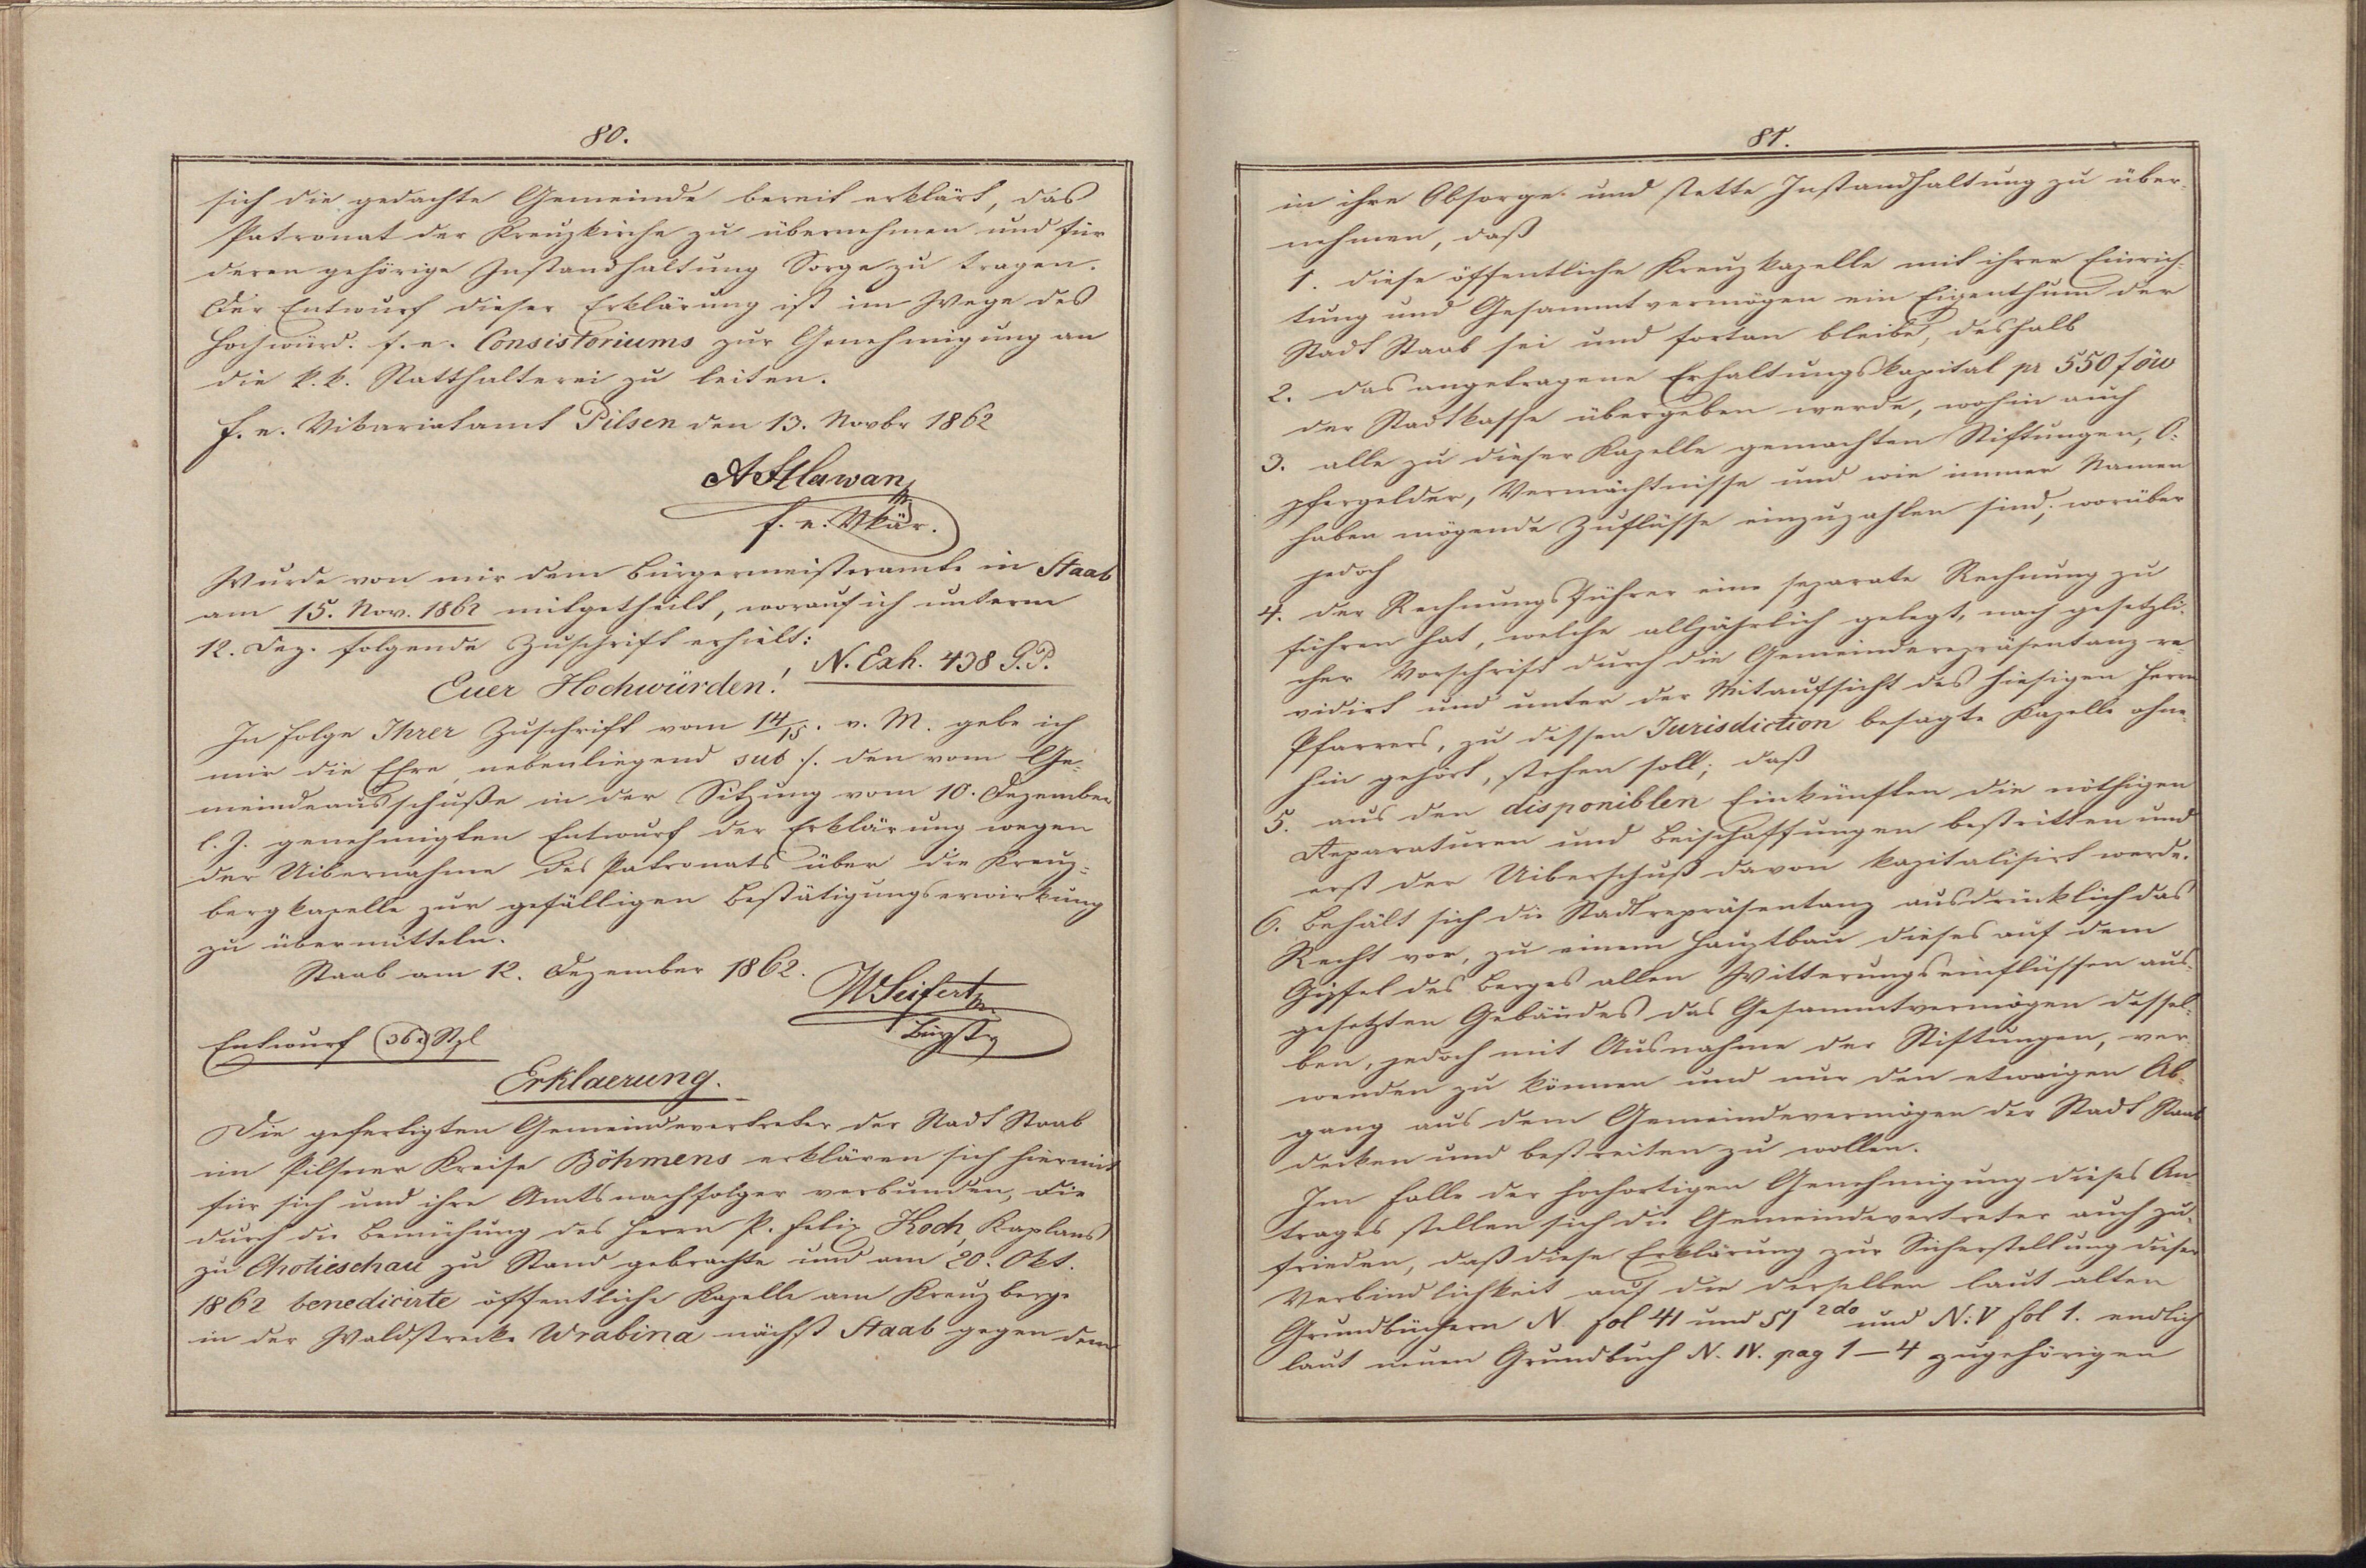 80.
sich die gedachte Gemeinde bereit erklärt, das
Patronat der Kreuzkirche zu übernehmen und für
deren gehörige Instandhaltung Sorge zu tragen.
Der Entwurf dieser Erklärung ist im Wege des
hochwürd. f. e. Consistoriums zur Genehmigung an
die k. k. Statthalterei zu leiten.
f. e. Vikariatamt Pilsen den 13. Novbr 1862
A Hlawan
f. e. Vkär.
Wurde von mir dem Bürgermeisteramte in Staab
am 15. Nov. 1862 mitgetheilt, worauf ich unterm
12. Dez. folgende Zuschrift erhielt:
N. Exh. 438 G.P.
Euer Hochwürden!
In Folge Ihrer Zuschrift vom 14/15. v. M. gebe ich
mir die Ehre, nebenliegend sub ./. den vom Ge-
meindeausschuße in der Sitzung vom 10. Dezember
l. J. genehmigten Entwurf der Erklärung wegen
der Uibernahme des Patronats über die Kreuz-
bergkapelle zur gefälligen Bestätigungserwirkung
zu übermitteln.
Staab am 12. Dezember 1862.
W Seifert
Bürgstr
Entwurf (36 x) Stpl
Erklaerung.
Die gefertigten Gemeindevertreter der Stadt Staab
im Pilsner Kreise Böhmens erklären sich hiermit
für sich und ihre Amtsnachfolger verbunden, die
durch die Bemühung des Herrn P. Felix Koch, Kaplans
zu Chotieschau zu Stand gebrachte und am 20. Okt.
1862 benedicirte öffentliche Kapelle am Kreuzberge
in der Waldstrecke Wrabina nächst Staab gegen dem
81.
in ihre Obsorge und stette Instandhaltung zu über-
nehmen, daß
1. diese öffentliche Kreuzkapelle mit ihrer Einrich-
tung und Gesammtvermögen ein Eigenthum der
Stadt Staab sei und fortan bleibe, deshalb
2. das angetragene Erhaltungskapital pr 550 f öw
der Stadtkasse übergeben werde, wohin auch
3. alle zu dieser Kapelle gemachten Stiftungen, O-
pfergelder, Vermächtnisse und wie immer Namen
haben mögende Zuflüsse einzuzahlen sind; worüber
jedoch
4. der Rechnungsführer eine separate Rechnung zu
führen hat, welche alljährlich gelegt, nach gesetzli-
cher Vorschrift durch die Gemeinderepräsentanz re-
vidirt und unter der Mitaufsicht des hiesigen Herrn
Pfarrers, zu dessen Jurisdiction besagte Kapelle ohne-
hin gehört, stehen soll; daß
5. aus den disponiblen Einkünften die nöthigen
Reparaturen und Beischaffungen bestritten und
erst der Uiberschuß davon kapitalisirt werde.
6. Behält sich die Stadtrepräsentanz ausdrücklich das
Recht vor, zu einem Hauptbau dieses auf dem
Gipfel des Berges allen Witterungseinflüssen aus-
gesetzten Gebäudes das Gesammtvermögen dessel-
ben, jedoch mit Ausnahme der Stiftungen, ver-
wenden zu können und nur den etwaigen Ab-
gang aus dem Gemeindevermögen der Stadt Staab
decken und bestreiten zu wollen.
Im Falle der hochortigen Genehmigung dieses An-
trages stellen sich die Gemeindevertreter auch zu-
frieden, daß diese Erklärung zur Sicherstellung dieser
Verbindlichkeit auf die derselben laut alten
Grundbüchern N fol 41 und 51 2do und N: V fol 1. endlich
laut neuen Grundbuch N. IV. pag 1 — 4 zugehörigen